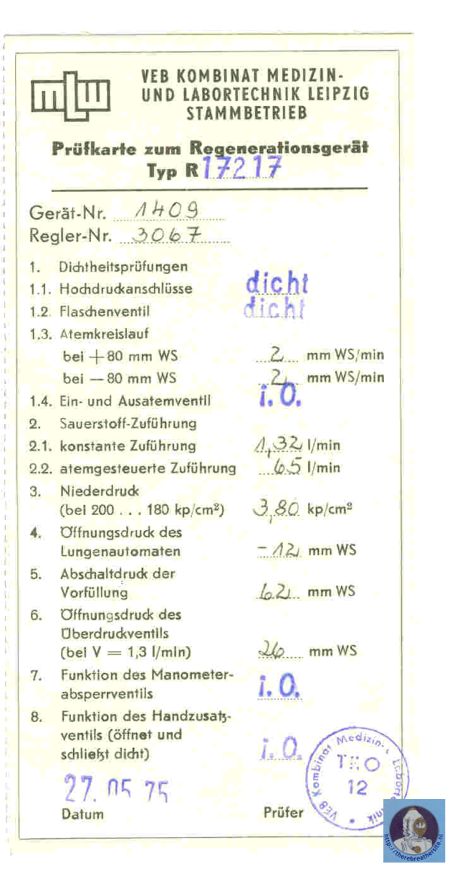 mlw
VEB KOMBINAT MEDIZIN-
UND LABORTECHNIK LEIPZIG
STAMMBETRIEB
Prüfkarte zum Regenerationsgerät
Typ R 17217
Gerät-Nr. 1409
Regler-Nr. 3067
1. Dichtheitsprüfungen
1.1. Hochdruckanschlüsse dicht
1.2. Flaschenventil dicht
1.3. Atemkreislauf
bei +80 mm WS 2 mm WS/min
bei — 80 mm WS 2 mm WS/min
1.4. Ein- und Ausatemventil i.O.
2. Sauerstoff-Zuführung
2.1. konstante Zuführung 1,32 l/min
2.2. atemgesteuerte Zuführung 65 l/min
3. Niederdruck
(bei 200 . . . 180 kp/cm²) 3,80 kp/cm²
4. Öffnungsdruck des
Lungenautomaten - 12 mm WS
5. Abschaltdruck der
Vorfüllung 62 mm WS
6. Öffnungsdruck des
Überdruckventils
(bei V = 1,3 l/min) 26 mm WS
7. Funktion des Manometer-
absperrventils i.O.
8. Funktion des Handzusatz-
ventils (öffnet und
schließt dicht) i.O.
27. 05 75
Datum Prüfer
VEB Kombinat Medizin- Labortechnik
TKO
12
http://therebreathersite.nl